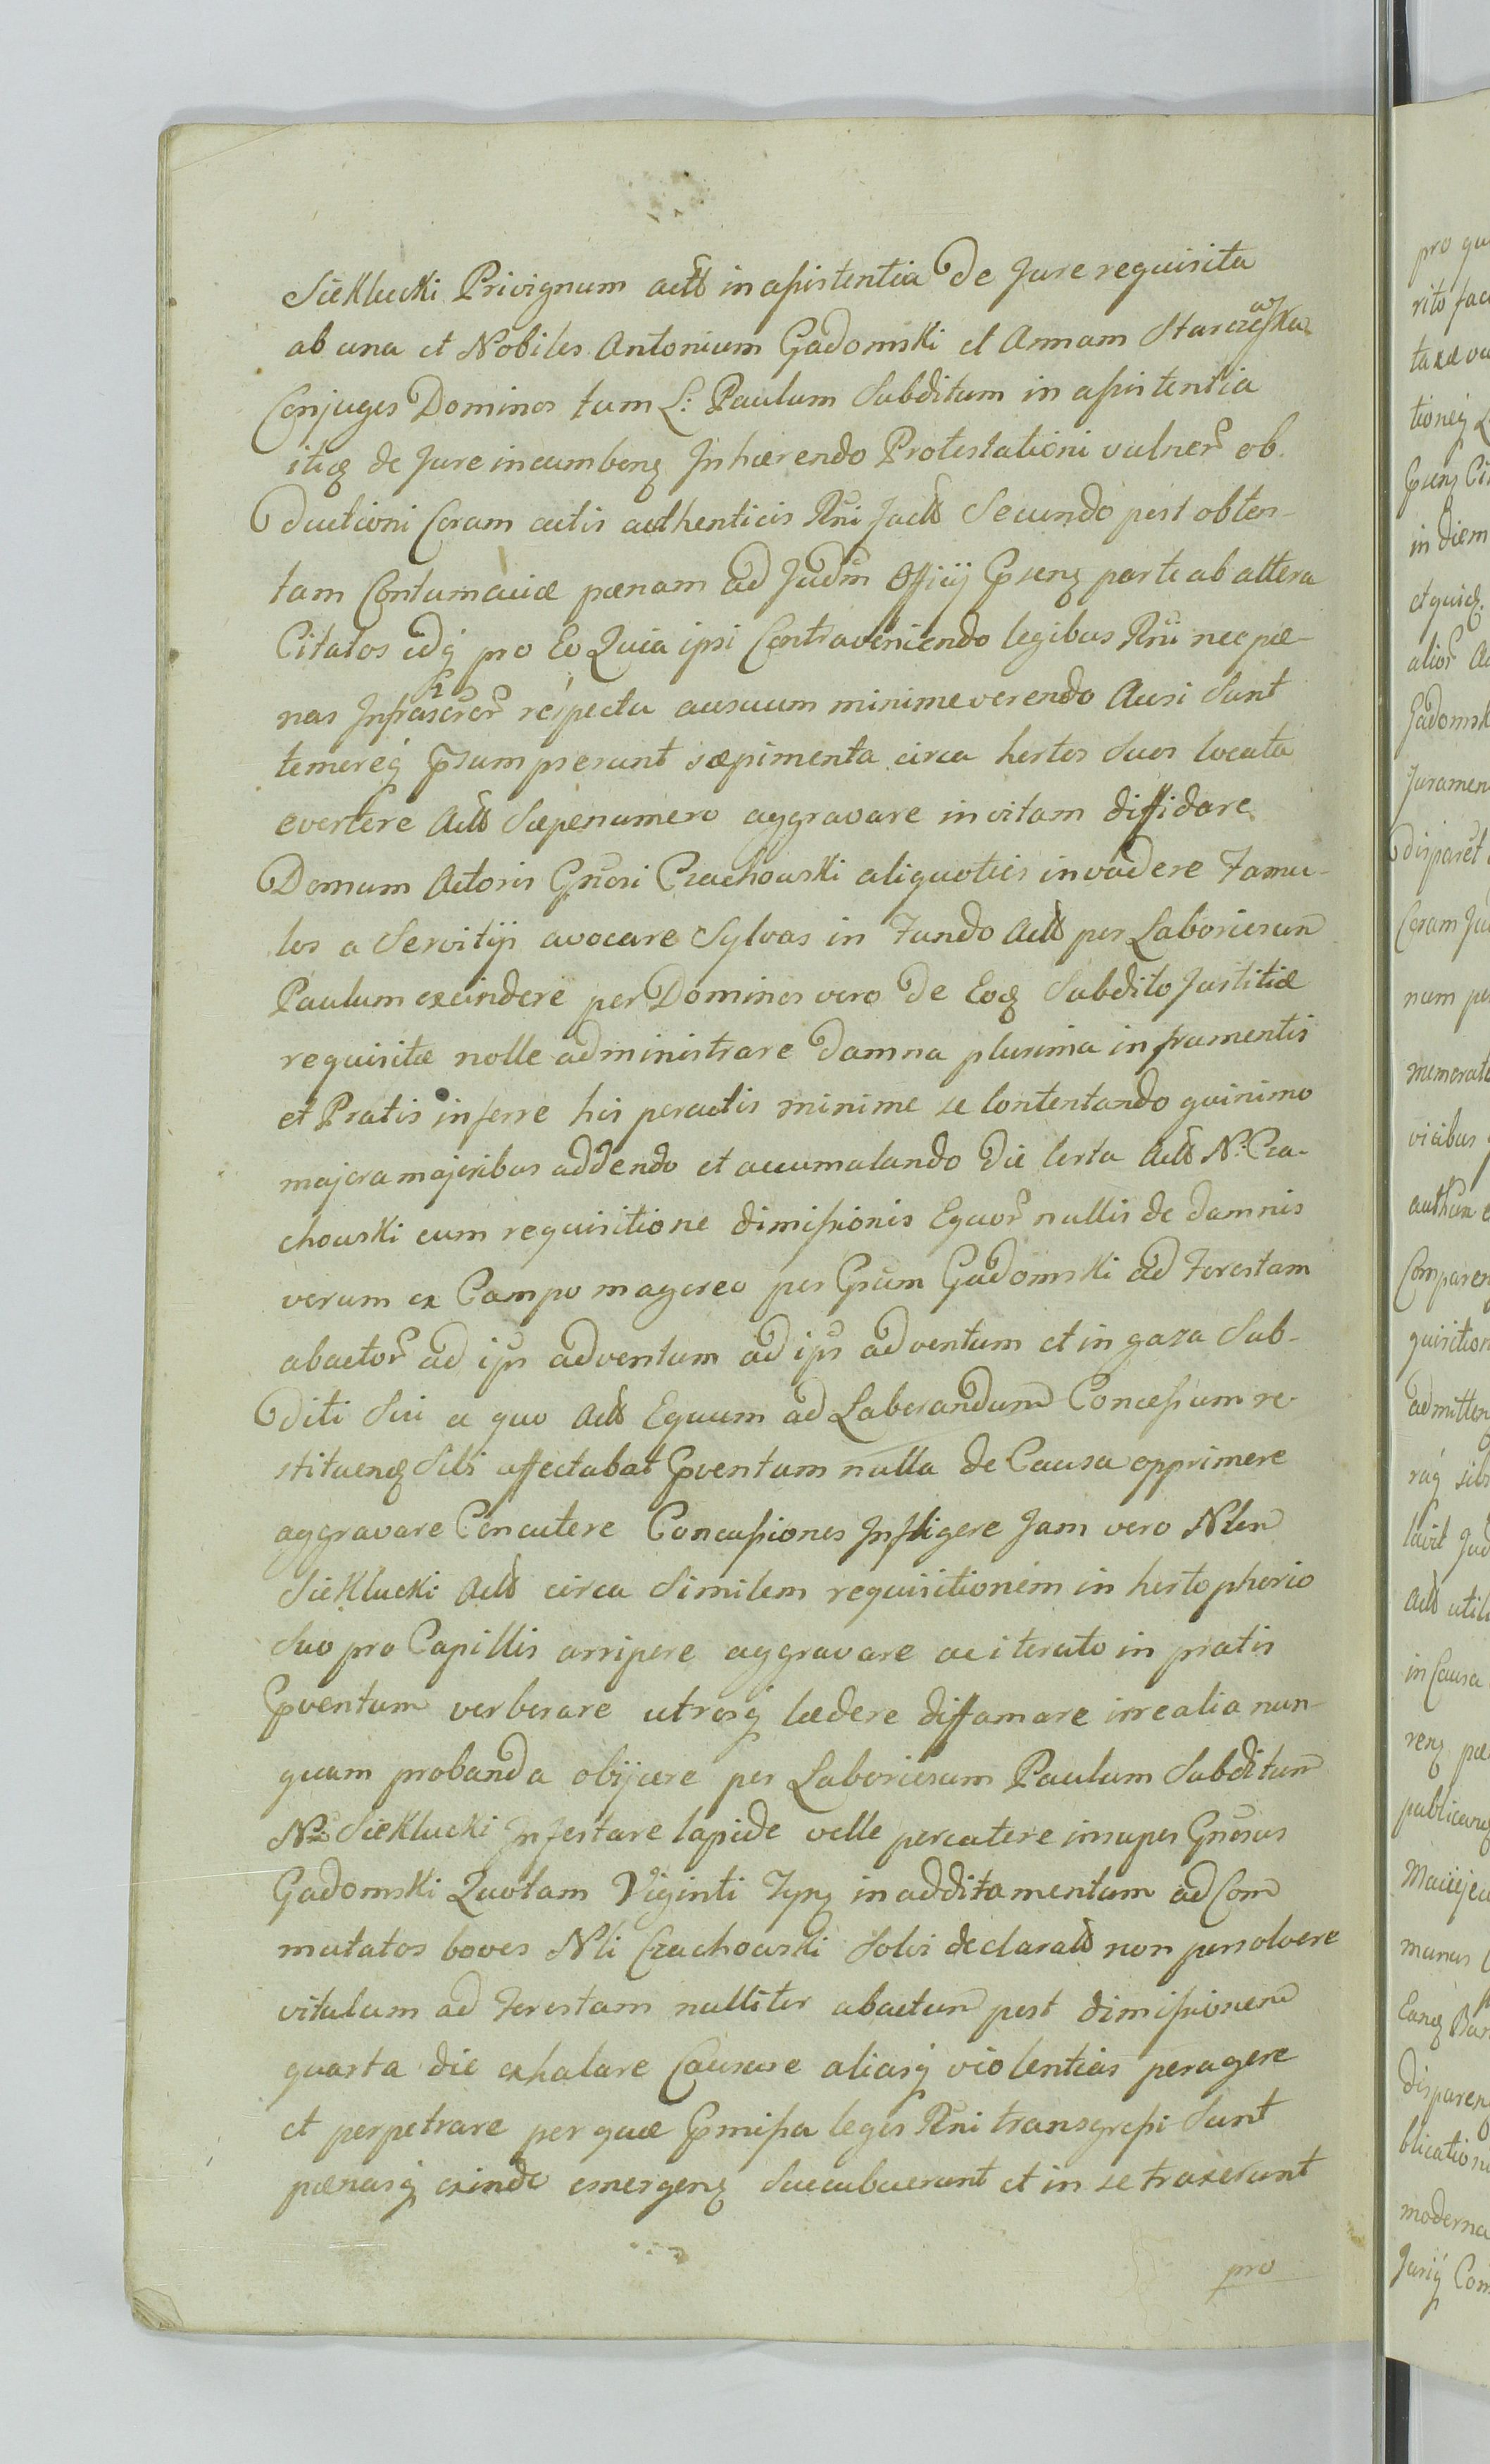 Sieklucki Privignum actt in assistentia De Jure requisita
ab una et Nobiles Antonium Gadomski et Annam Starczewska
Conjuges Dominos tum L: Paulum Subditum in assistentia
itidq de Jure incumbenq Inhærendo Protestationi vulner ob
ductioni Coram actis authenticis Rni factt Secundo post obten-
tam Contumaciæ pænam ad Judm Officij Psenq parte ab altera
Citatos idq pro Eo Quia ipsi Contraveniendo legibus Rni nec pæ-
nas Infrascrer respectu ausuum minime verendo Ausi Sunt
temereq Psumpserunt sæpimenta circa hortos Suos locata
evertere Actt Sæpenumero aggravare in vitam diffidare
Domum Actoris Gnosi Czachowski aliquoties invadere Famu-
los a Servitijs avocare Sylvas in Fundo Actt per Laboriosum
Paulum excindere per Dominos vero De Eodq Subdito Justitiæ
requisitæ nolle administrare Damna plurima in frumentis
et Pratis inferre his peractis minime se Contentando quinimo
majora majoribus addendo et accumulando Die Certa Actt N: Cza-
chowski cum requisitione dimissionis Equor nullis de damnis
verum ex Campo magereo per Gsum Gadomski ad Forestam
abactor ad ips adventum ad ips adventum et in gaza Sub-
diti Sui a quo Actt Equum ad Laborandum Concessum re-
stituendq Sibi affectabat Pventum nulla de Causa opprimere
aggravare Concutere Concussiones Infligere Jam vero Nlem
Sieklucki Actt circa Similem requisitionem in horto phorio
Suo pro Capillis arripere aggravare ac iterato in pratis
Pventum verberare utrosq lædere diffamare irrealia nun-
quam probanda obijcere per Laboriosum Paulum Subditum
Nem Sieklucki Infestare lapide velle percutere insuper Gnosus
Gadomski Quotam Viginti Typq in additamentum ad Com
mutatos boves Nli Czachowski Solvi declaratt non persolvere
vitulum ad Forestam nulliter abactum post dimissionem
quarta die exhalare Causare aliasq violentias peragere
et perpetrare per quæ Pmissa leges Rni transgressi Sunt
pænasq exinde emergenq Succubuerunt et in se traxerunt
pro